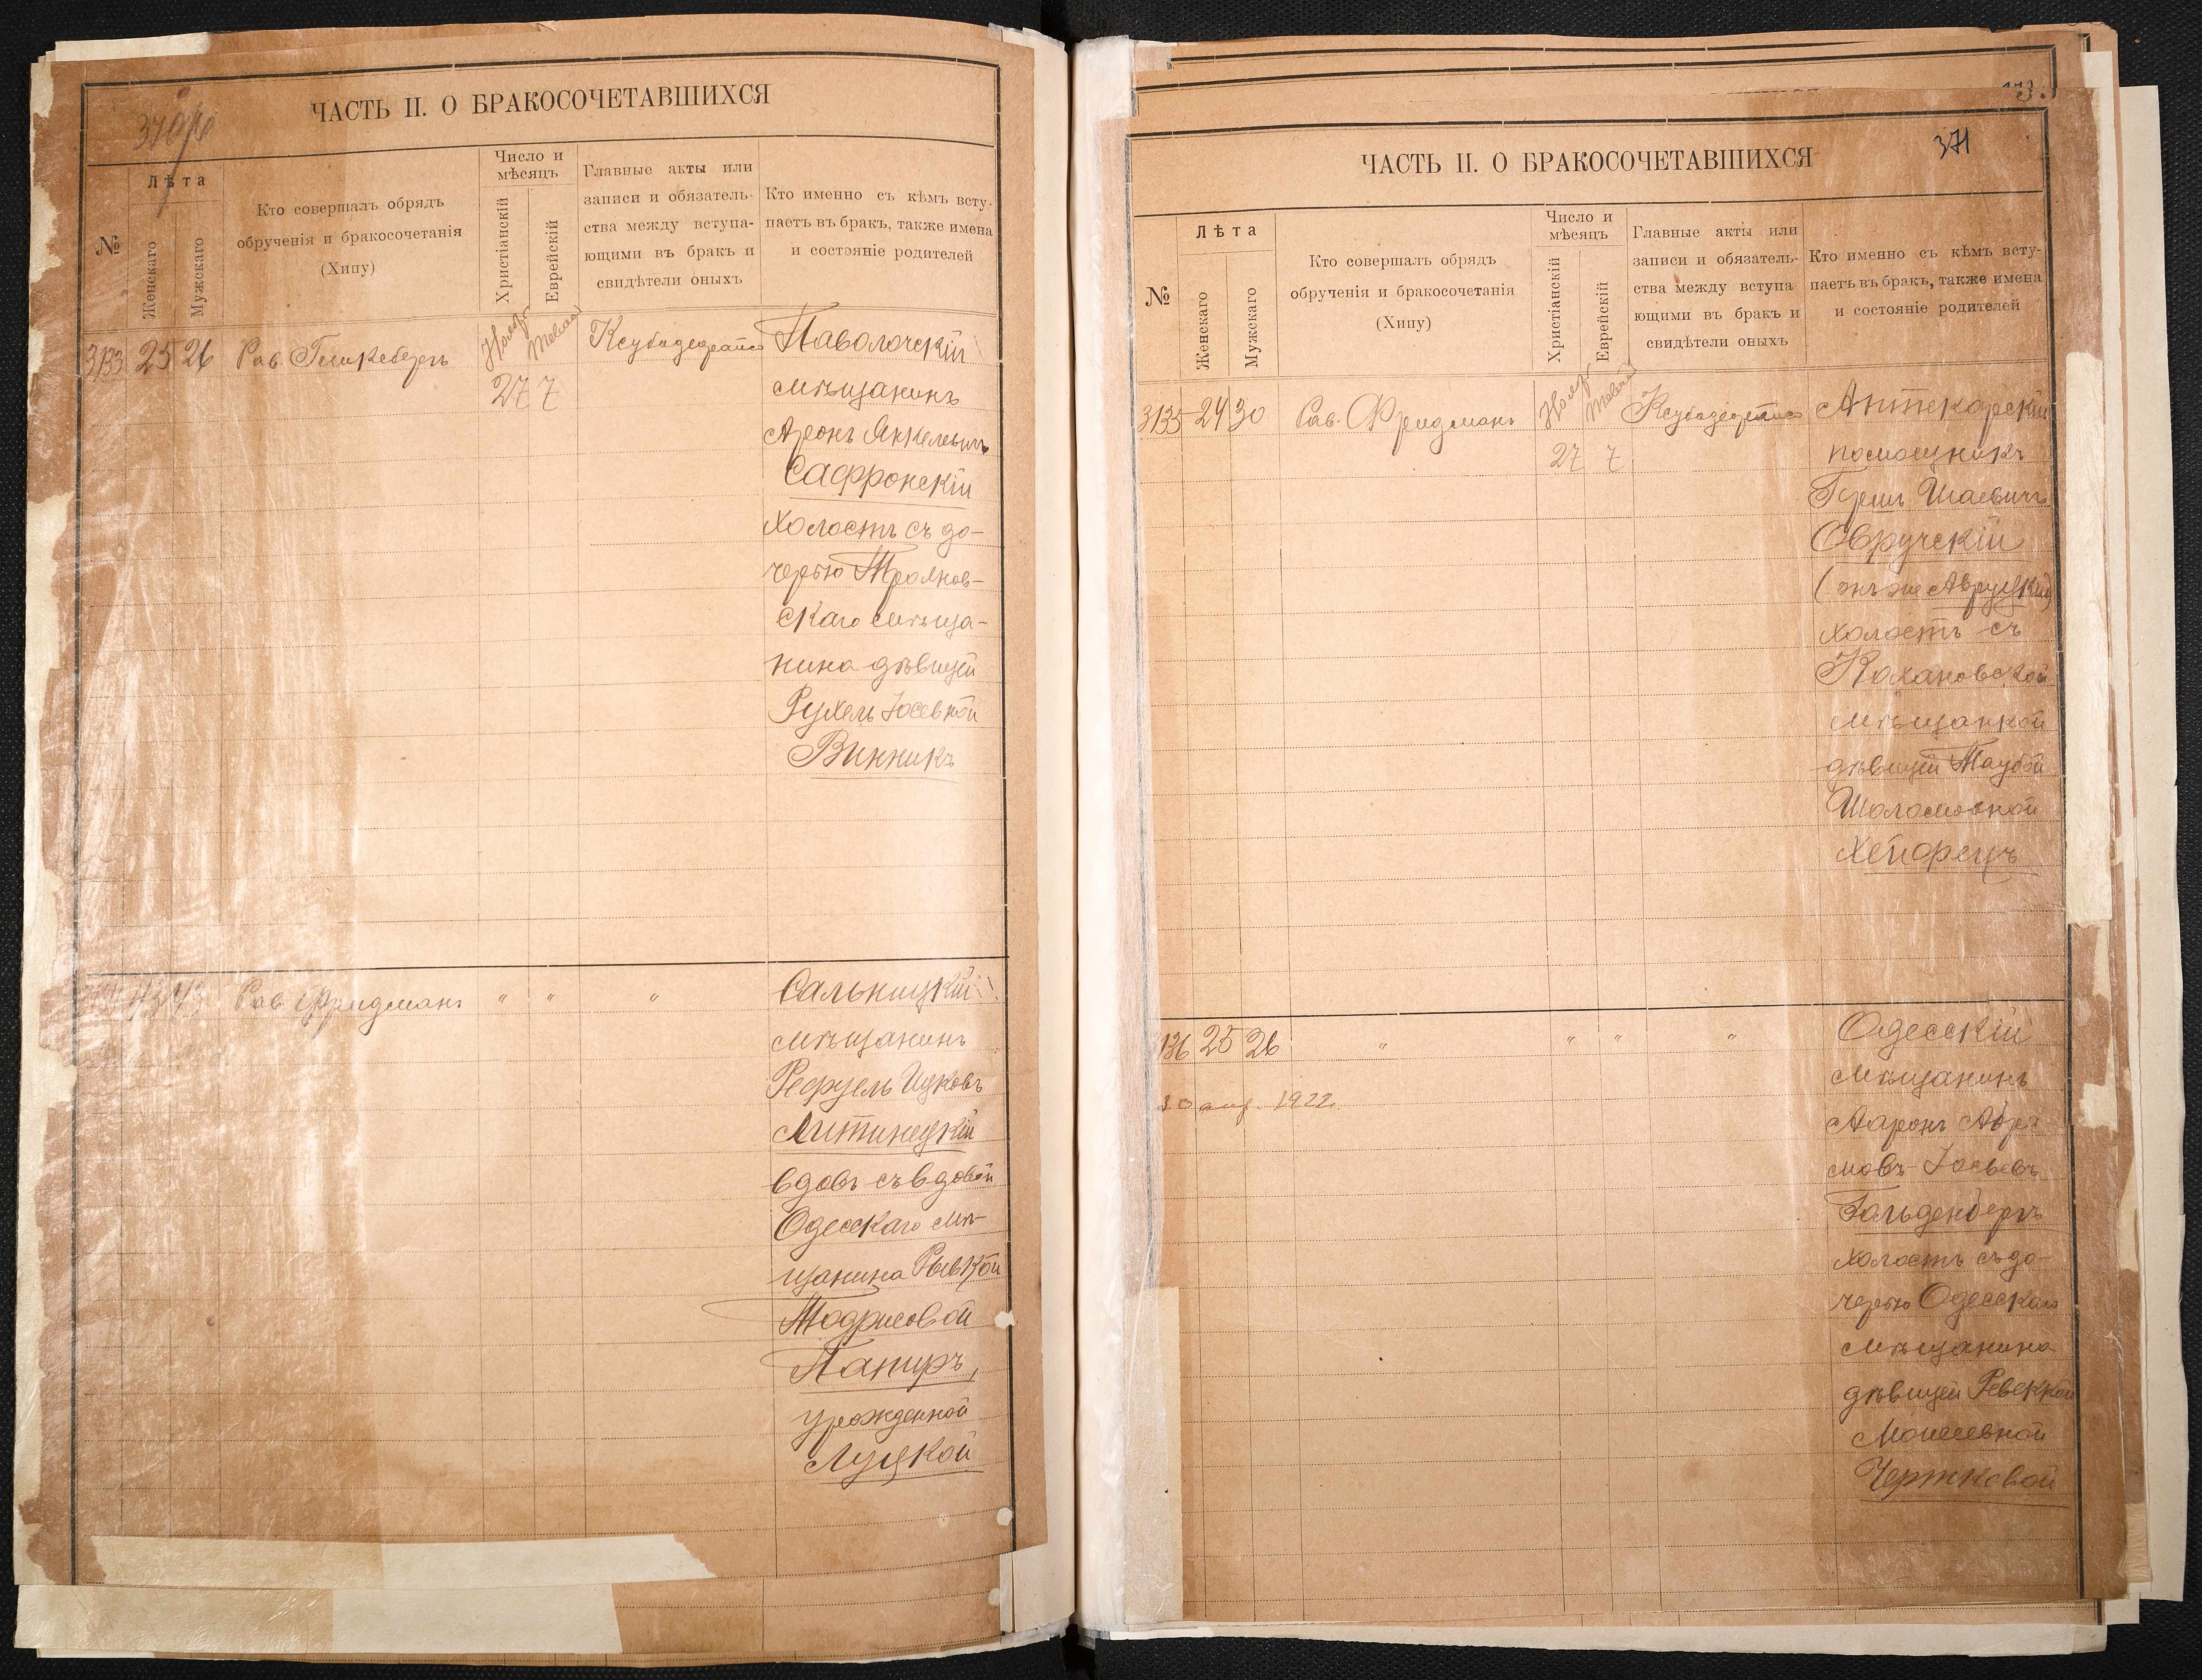 370об
ЧАСТЬ II. О БРАКОСОЧЕТАВШИХСЯ
№
Лѣта
Женскаго
Мужскаго
Кто совершалъ обрядъ
обрученія и бракосочетанія
(Хипу)
Число и
мѣсяцъ
Христіанскій
Еврейскій
Главные акты или
записи и обязатель-
ства между вступа-
ющими въ бракъ и
свидѣтели оныхъ
Кто именно съ кѣмъ всту-
паетъ въ бракъ, также имена
и состояніе родителей
3133 25 26 Рав. Нояб. Паволочскій
27 7 мѣщанинъ
Аронъ Янкелевичъ
Сафронскій
холостъ съ до-
черью Троянов-
скаго мѣща-
нина дѣвицей
Рухель Іосевной
Винникъ
43 43 Рав. Фридманъ " " " Сальницкій
мѣщанинъ
Рефуель Ицковъ
Литинецкій
вдовъ съ вдовой
Одесскаго мѣ-
щанина Рывкой
Тодрисовой
Паниръ,
урожденной
Луцкой
373.
371
ЧАСТЬ II. О БРАКОСОЧЕТАВШИХСЯ
№
Лѣта
Женскаго
Мужскаго
Кто совершалъ обрядъ
обрученія и бракосочетанія
(Хипу)
Число и
мѣсяцъ
Христіанскій
Еврейскій
Главные акты или
записи и обязатель-
ства между вступа
ющими въ бракъ и
свидѣтели оныхъ
Кто именно съ кѣмъ всту-
паетъ въ бракъ, также имена
и состояніе родителей
3135 24 30 Рав. Фридманъ Нояб. Аптекарскій
27 7 помощникъ
Герш Шаевичъ
Овручскій
(онъ же Авруцкій)
холостъ съ
Кохановской
мѣщанкой
дѣвицей Таубой
Шоломовной
Хейфецъ
136 25 26 " " " " Одесскій
мѣщанинъ
10 апр. 1922
Ааронъ Абра
мовъ-Іосьевъ
Гольденбергъ
холостъ съ до-
черью Одесскаго
мѣщанина
дѣвицей Ревеккой
Моисеевной
Чертковой